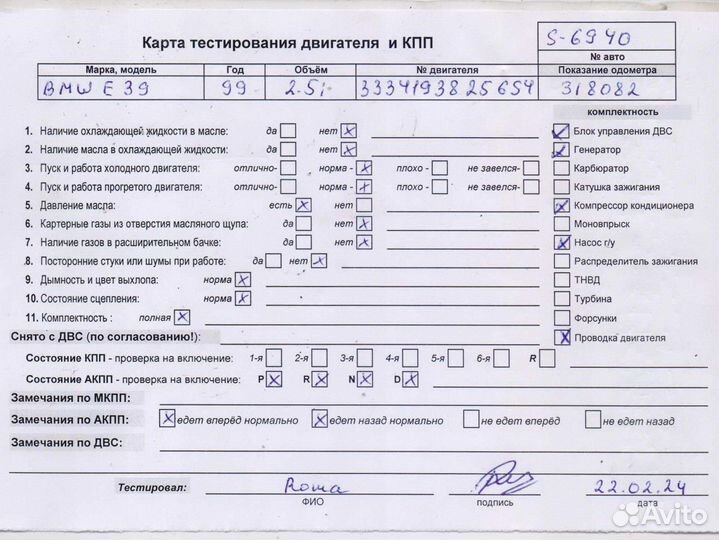 Карта тестирования двигателя и КПП
S-6940
№ авто
Марка, модель Год Объём № двигателя Показание одометра
BMW E 39 99 2.5i 3334193825654 318082
комплектность
1. Наличие охлаждающей жидкости в масле: да нет X Блок управления ДВС
2. Наличие масла в охлаждающей жидкости: да нет X Генератор
3. Пуск и работа холодного двигателя: отлично- норма - X плохо - не завелся- Карбюратор
4. Пуск и работа прогретого двигателя: отлично- норма - X плохо - не завелся- Катушка зажигания
5. Давление масла: есть X нет Компрессор кондиционера
6. Картерные газы из отверстия масляного щупа: да нет X Моновпрыск
7. Наличие газов в расширительном бачке: да нет X Насос г/у
8. Посторонние стуки или шумы при работе: да нет X Распределитель зажигания
9. Дымность и цвет выхлопа: норма X ТНВД
10. Состояние сцепления: норма X Турбина
11. Комплектность : полная X Форсунки
Снято с ДВС (по согласованию!): Проводка двигателя
Состояние КПП - проверка на включение: 1-я 2-я 3-я 4-я 5-я 6-я R
Состояние АКПП - проверка на включение: P X R X N X D X
Замечания по МКПП:
Замечания по АКПП: X едет вперёд нормально X едет назад нормально не едет вперёд не едет назад
Замечания по ДВС:
Тестировал: Roma 22.02.24
ФИО подпись дата
Avito